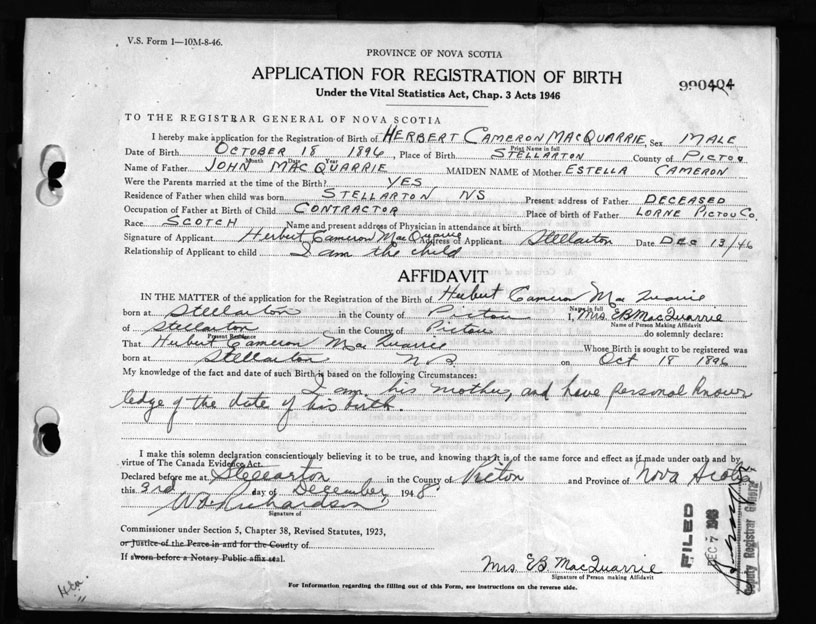 V.S. Form 1—10M-8-46.
PROVINCE OF NOVA SCOTIA
APPLICATION FOR REGISTRATION OF BIRTH
990404
Under the Vital Statistics Act, Chap. 3 Acts 1946
TO THE REGISTRAR GENERAL OF NOVA SCOTIA
I hereby make application for the Registration of Birth of HERBERT CAMERON MACQUARRIE, Sex MALE
Print Name in full
Date of Birth OCTOBER 18 1896, Place of Birth STELLARTON County of PICTOU
Month Date Year
Name of Father JOHN MACQUARRIE MAIDEN NAME of Mother ESTELLA CAMERON
Were the Parents married at the time of the Birth? YES
Residence of Father when child was born STELLARTON NS Present address of Father DECEASED
Occupation of Father at Birth of Child CONTRACTOR Place of birth of Father LORNE PICTOU Co.
Race SCOTCH Name and present address of Physician in attendance at birth
Signature of Applicant Herbert Cameron MacQuarrie Address of Applicant Stellarton Date DEC 13/46
Relationship of Applicant to child I am the child
AFFIDAVIT
IN THE MATTER of the application for the Registration of the Birth of Herbert Cameron MacQuarrie
Name in full
born at Stellarton in the County of Pictou I, Mrs. EB MacQuarrie
Name of Person Making Affidavit
of Stellarton in the County of Pictou do solemnly declare:
Present Residence
That Herbert Cameron MacQuarrie Whose Birth is sought to be registered was
born at Stellarton N.S. on Oct 18 1896
My knowledge of the fact and date of such Birth is based on the following Circumstances:
I am his mother, and have personal know
ledge of the date of his birth.
I make this solemn declaration conscientiously believing it to be true, and knowing that it is of the same force and effect as if made under oath and by
virtue of The Canada Evidence Act.
Declared before me at Stellarton in the County of Pictou and Province of Nova Scotia
this 3rd day of December, 1948.
Richardson
Signature of
Commissioner under Section 5, Chapter 38, Revised Statutes, 1923,
or Justice of the Peace in and for the County of
If sworn before a Notary Public affix seal.
FILED
DEC 7 1948
Deputy Registrar General
Mrs EB MacQuarrie
Signature of Person making Affidavit
For Information regarding the filling out of this Form, see instructions on the reverse side.